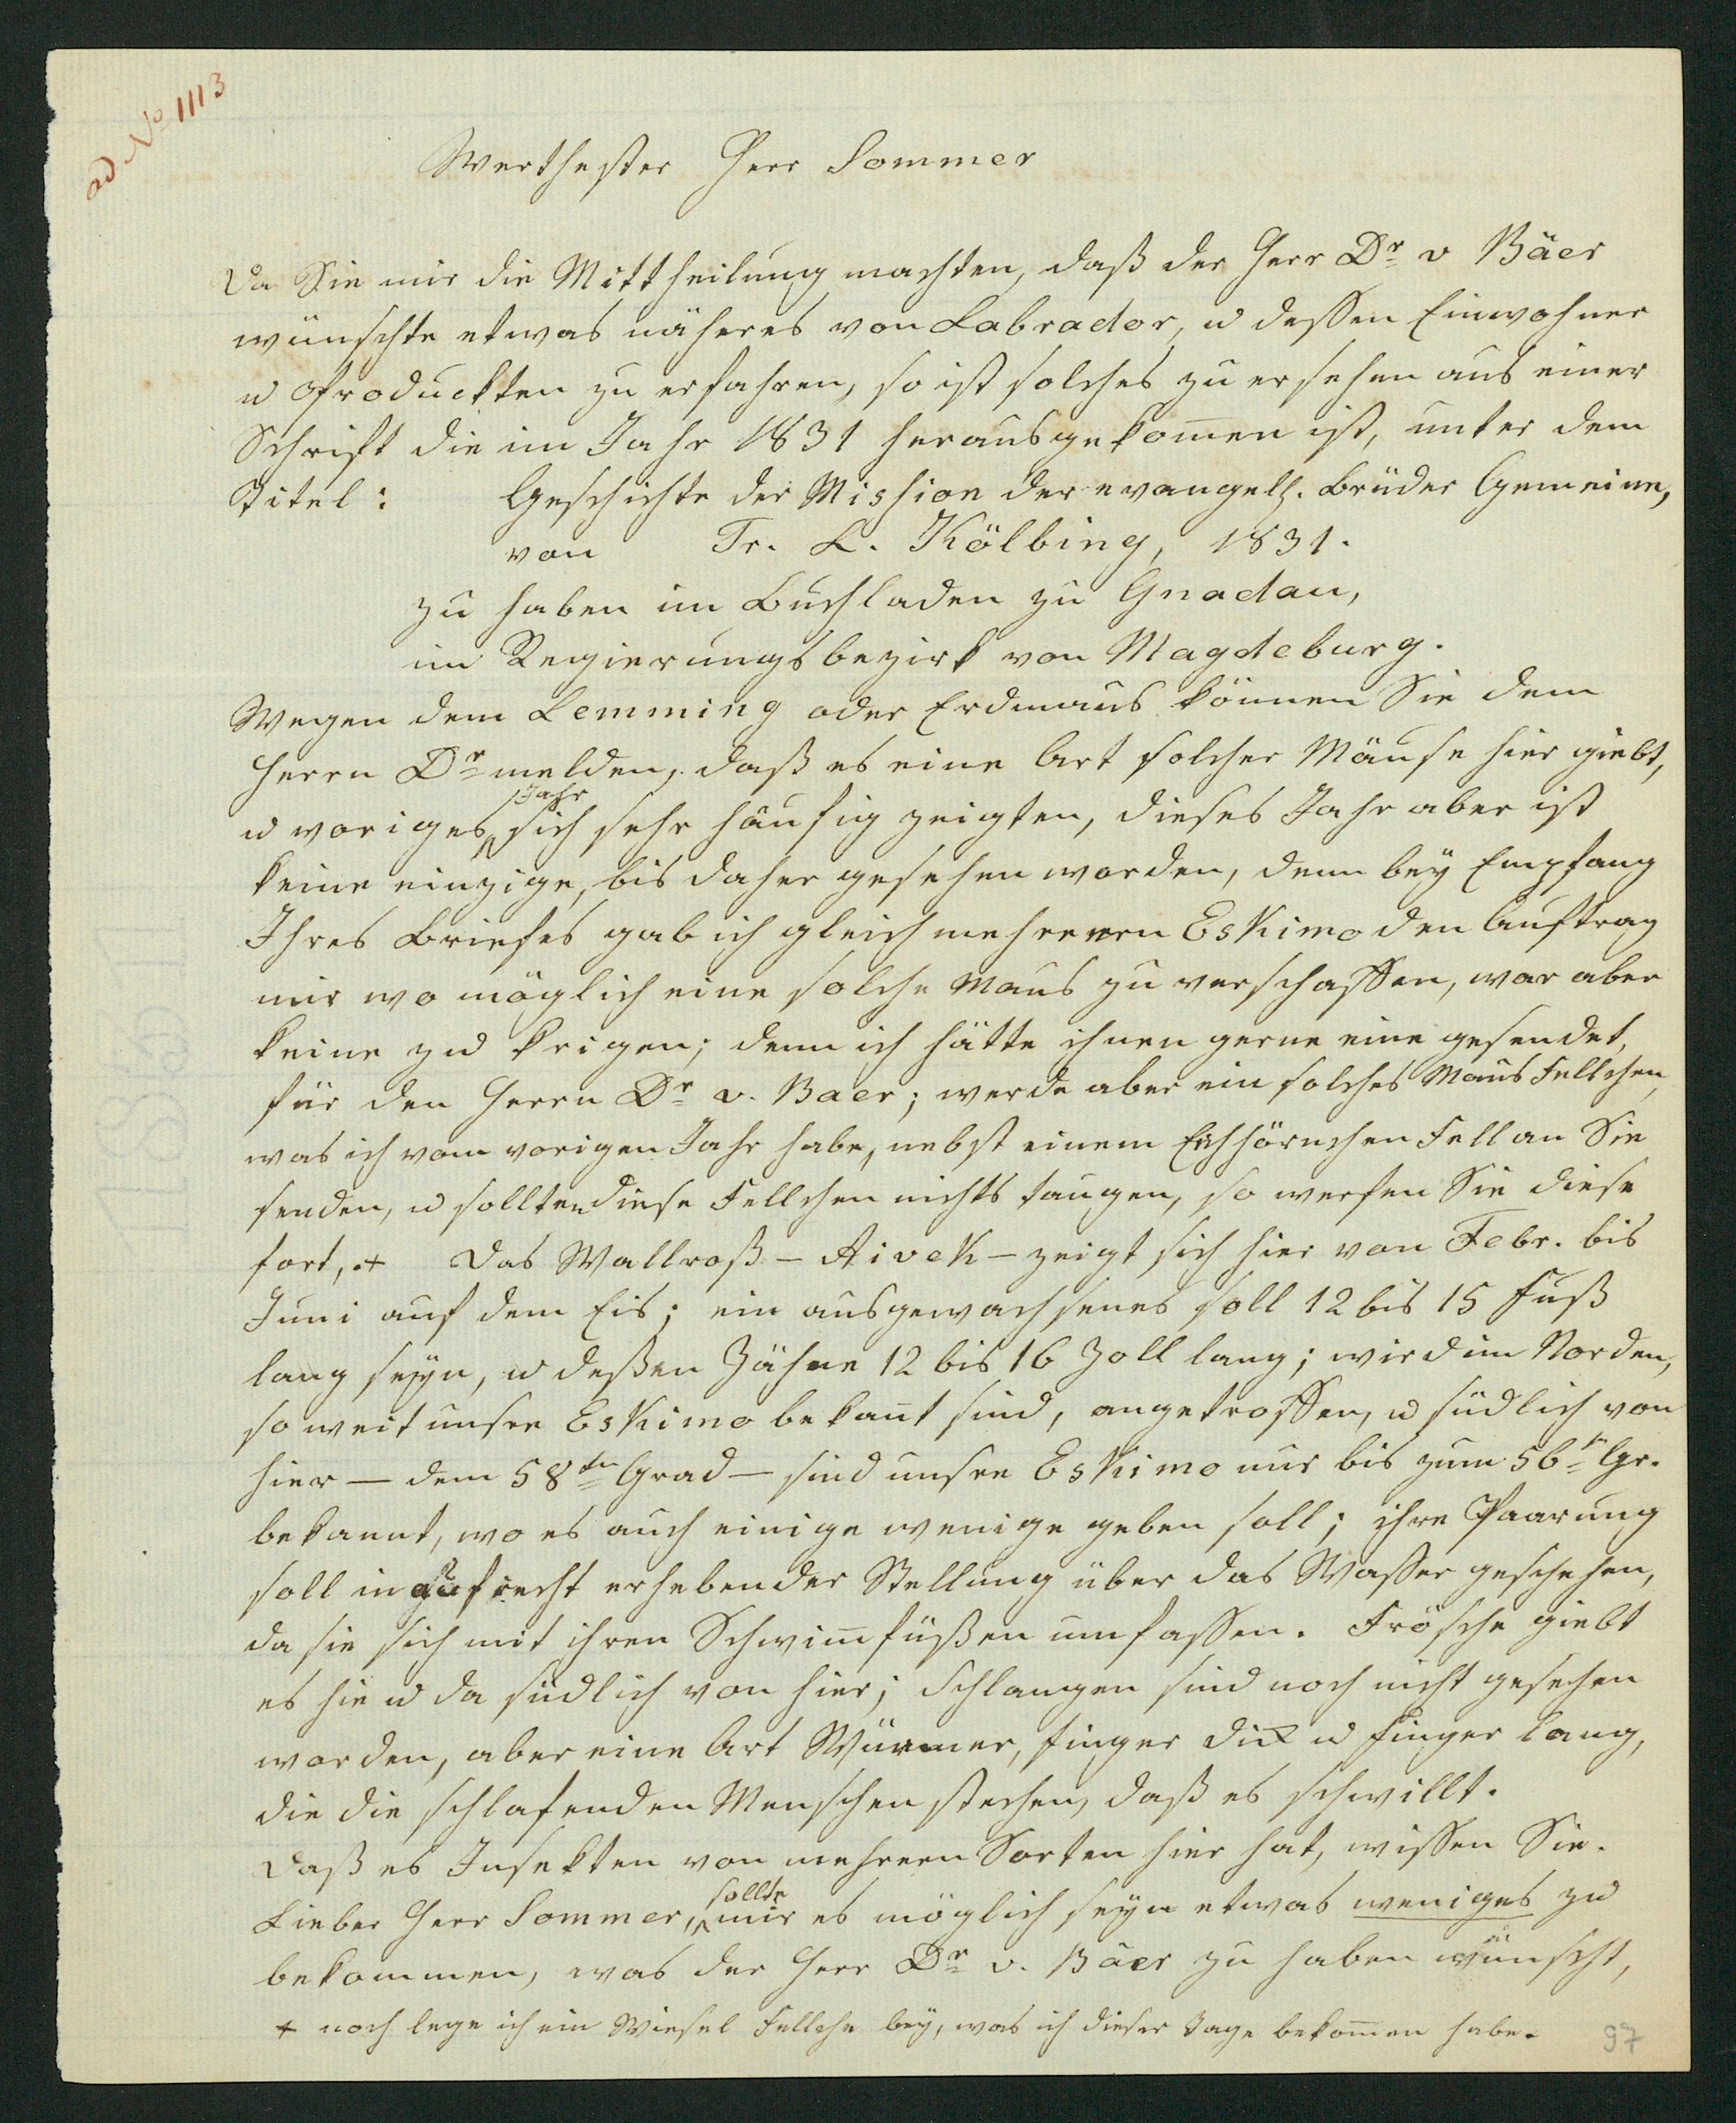 ad No 1113
Werthester Herr Sommer
Da Sie mir die Mittheilung machten, daß der Herr Dr v Bäer
wünschte etwas näheres von Labrador, u dessen Einwohner
u Produckten zu erfahren, so ist solches zu ersehen aus einer
Schrift die im Jahr 1831 herausgekom̄en ist, unter dem
Titel: Geschichte der Mission der evangel. Brüder Gemeine,
von Fr. L. Kölbing, 1831.
zu haben im Buchladen zu Gnadau,
im Regierungsbezirk von Magdeburg.
Wegen dem Lemming oder Erdmaus können Sie dem
Herrn Dr melden, daß es eine Art solcher Mäuse hier giebt,
u voriges Jahr sich sehr häufig zeigten, dieses Jahr aber ist
keine einzige, bis daher gesehen worden, denn bey Empfang
Ihres Briefes gab ich gleich mehreren Eskimo den Auftrag
mir wo möglich eine solche Maus zu verschaffen, war aber
keine zu krigen; denn ich hätte ihnen gerne eine gesendet,
für den Herrn Dr v. Baer; werde aber ein solches Maus Fellchen,
was ich vom vorigen Jahr habe, nebst einem Eichhörnchen Fell an Sie
senden, u sollten diese Fellchen nichts taugen, so werfen Sie diese
fort, .+ Das Wallroß – Aivek – zeigt sich hier von Febr. bis
Juni auf dem Eis; ein ausgewachsenes soll 12 bis 15 Fuß
lang seyn, u deßen Zähne 12 bis 16 Zoll lang; wird im Norden,
so weit unsre Eskimo bekan̄t sind, angetroffen, u südlich von
hier – dem 58ten Grad – sind unsre Eskimo nur bis zum 56n Gr.
bekannt, wo es auch einige wenige geben soll; ihre Paarung
soll in aufrecht erhebender Stellung über das Wasser geschehen,
da sie sich mit ihren Schwim̄füßen umfassen. Frösche giebt
es hie u da südlich von hier; Schlangen sind noch nicht gesehen
worden, aber eine Art Würmer, finger dick u finger lang,
die die schlafenden Menschen stechen, daß es schwillt.
Daß es Insekten von mehrern Sorten hier hat, wissen Sie.
Lieber Herr Sommer, sollte mir es möglich seyn etwas weniges zu
bekommen, was der Herr Dr v. Bäer zu haben wünscht,
+ noch lege ich ein Wiesel Fellche bey, was ich dieser Tage bekom̄en habe.
97